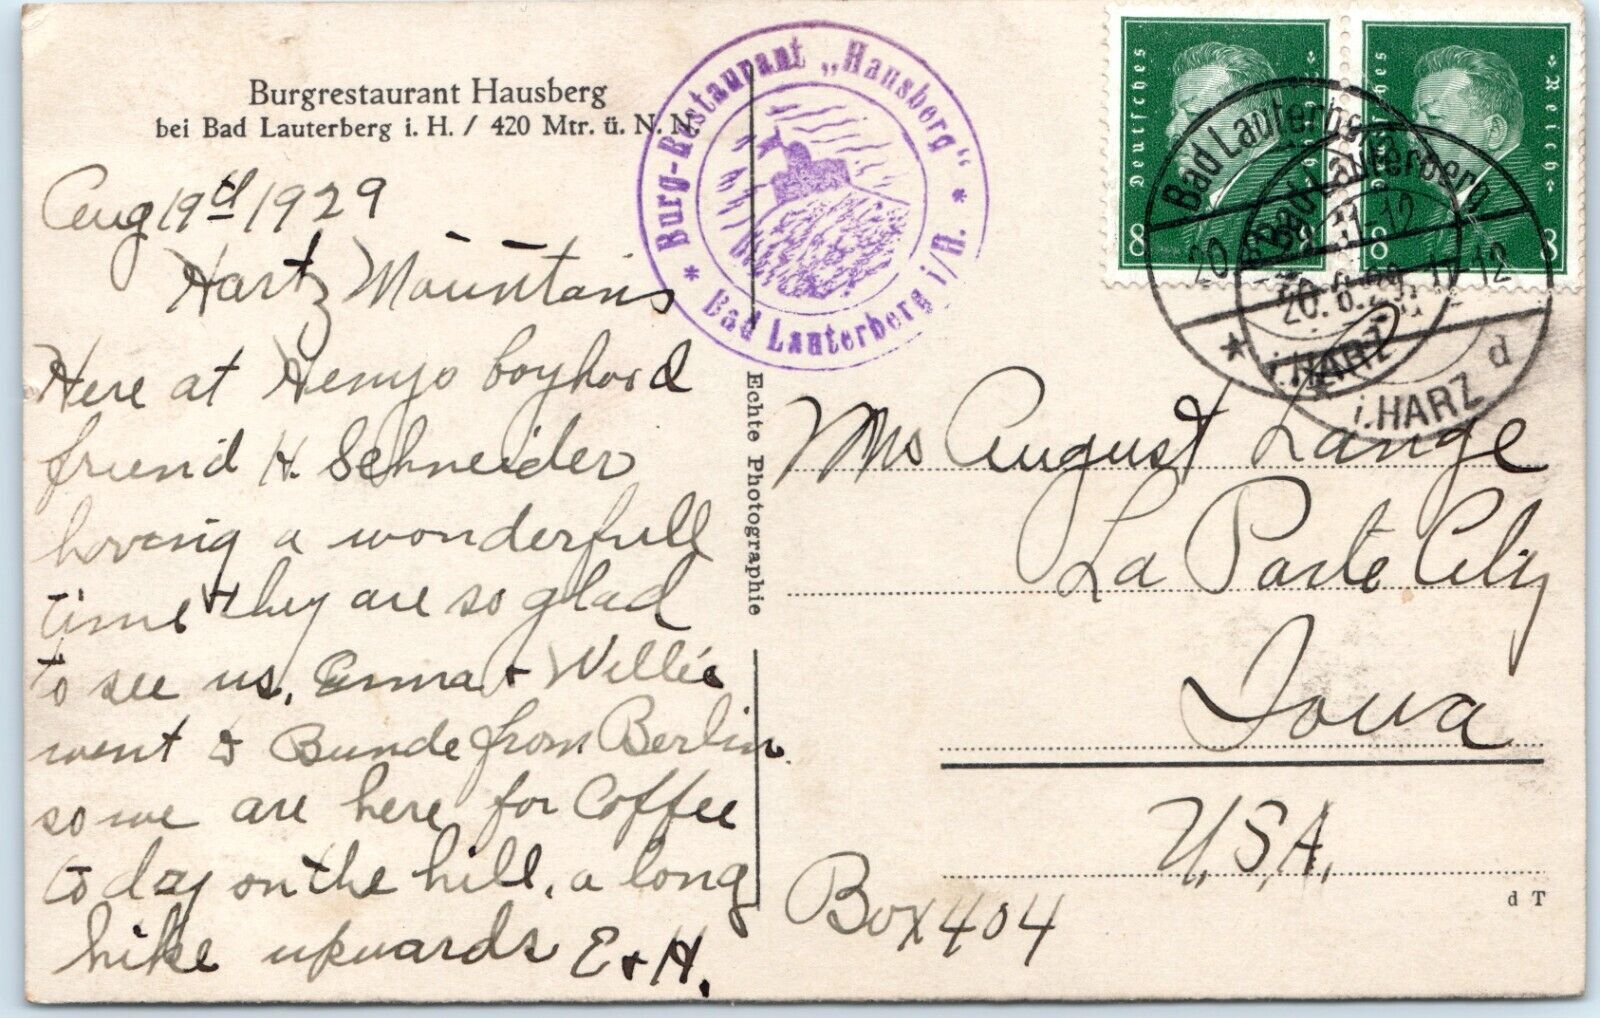 Burgrestaurant Hausberg
bei Bad Lauterberg i. H. / 420 Mtr. ü. N. N.
Aug 19th 1929
Hartz Mountains
Here at Henrys boyhood
friend H. Schneider
having a wonderfull
time + they are so glad
to see us. Emma + Willie
went to Bunde from Berlin
so we are here for Coffee
to day on the hill. a long
hike upwards E + H.
* Burg-Restaurant „Hausberg“ *
Bad Lauterberg i/H.
Echte Photographie
Deutsches Reich
8 8
Deutsches Reich
8 8
Bad Lauterberg
i. HARZ
Bad Lauterberg
20.8.29. 11-12
* i. HARZ d
Mrs August Lange
La Porte City
Iowa
U.S.A.
Box 404
d T